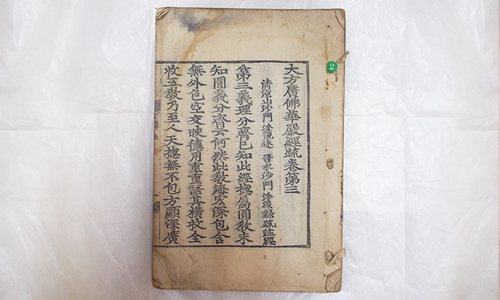 大方廣佛華嚴經䟽卷第三
清涼山沙門 澄觀述 晉水沙門 淨源録䟽注經
第三義理分齊已知此經揔屬圓教未
知圓義分齊云何然此教海宏深包含
無外色空交映德用重重語其橫收全
收五教乃至人天揔無不包方顯深廣
2